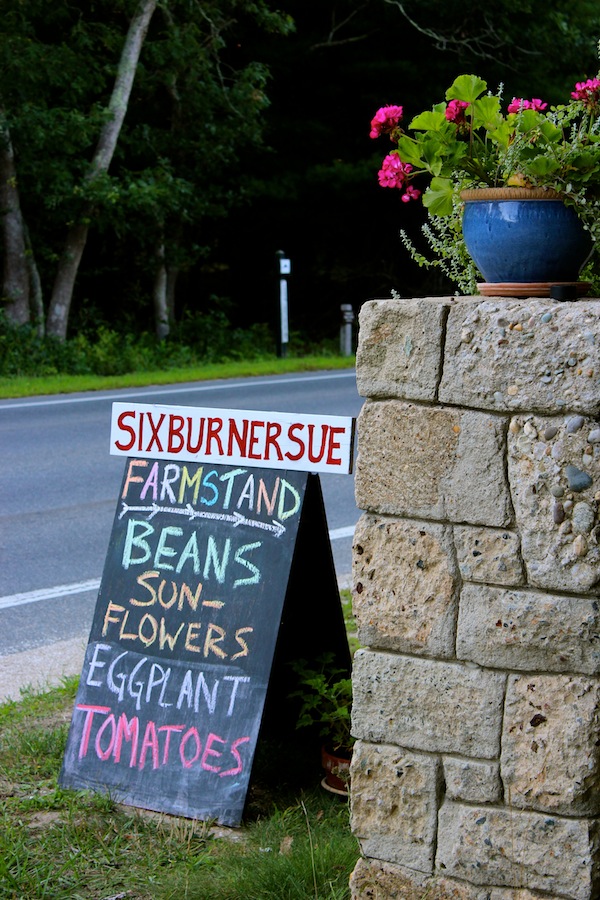 SIXBURNERSUE
FARMSTAND
BEANS
SUN-
FLOWERS
EGGPLANT
TOMATOES